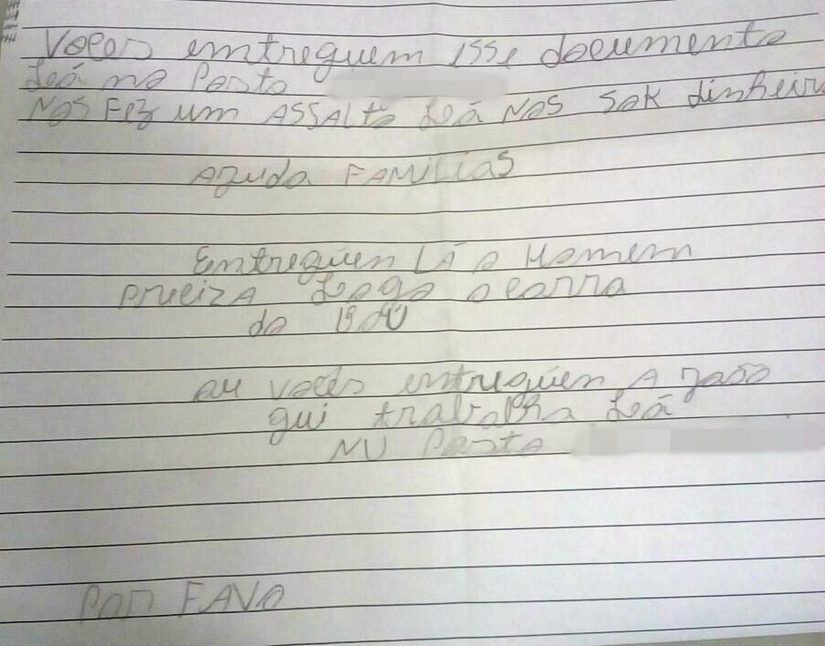 Voces entreguem isse documento
Loá no Posto
NOS FEZ um ASSALTO Loá NOS SOK dinheiro
Azuda FAMiLiAS
Entreguen LÁ o Homem
preciza Logo o carro
do
ou voces entreguen A
qui trabalha Loá
NU Posto
Por FAVO